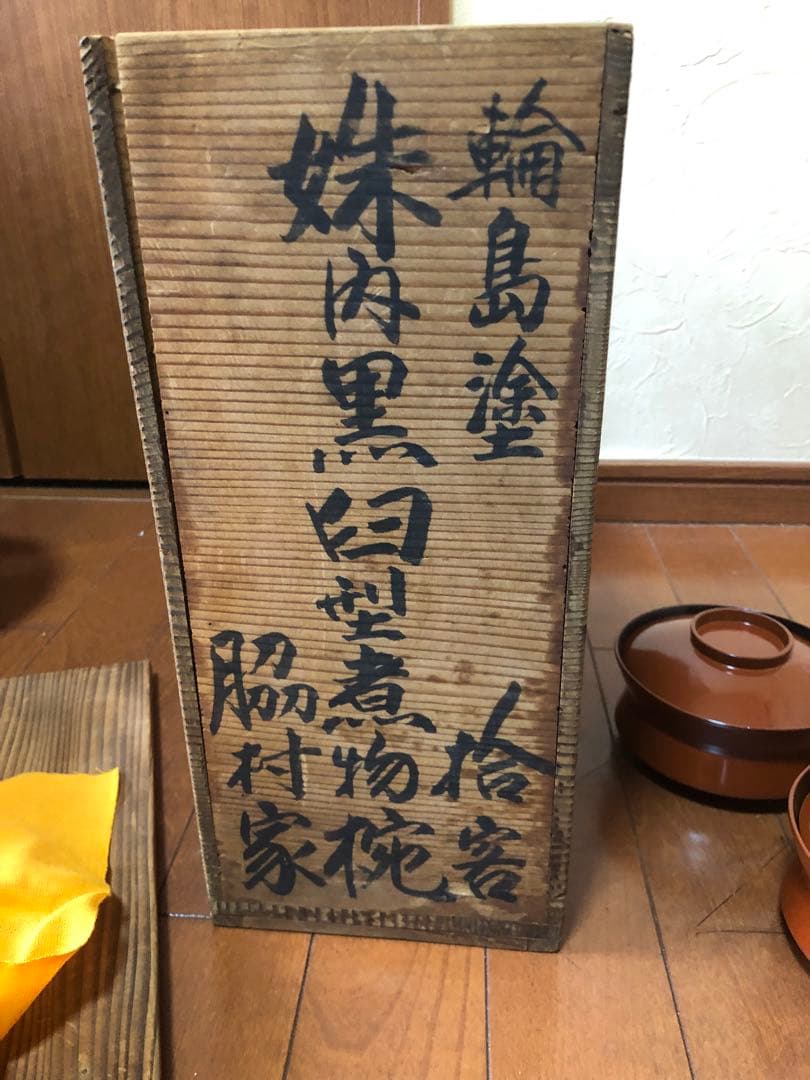 輪島塗 拾客
姝内黒臼型煮物椀
脇村家